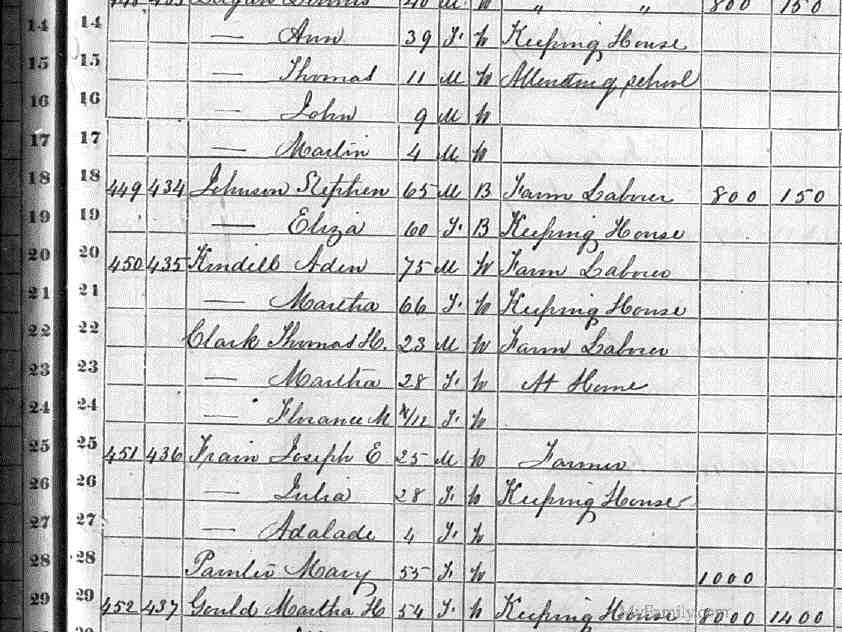 40 M. W " " 800 150
14 14 — Ann 39 F. W Keeping House
15 15 — Thomas 11 M W Attending school
16 16 — John 9 M W
17 17 — Martin 4 M W
18 18 449 434 Johnson Stephen 65 M B Farm Laborer 800 150
19 19 — Eliza 60 F. B Keeping House
20 20 450 435 Kindell Aden 75 M W Farm Laborer
21 21 — Martha 66 F. W Keeping House
22 22 Clark Thomas H. 23 M W Farm Laborer
23 23 — Martha 28 F. W At Home
24 24 — Florance M /12 F. W
25 25 451 436 Train Joseph E 25 M W Farmer
26 26 — Julia 28 F. W Keeping House
27 27 — Adalade 4 F. W
28 28 Mary 55 F. W 1000
29 29 452 437 Gould Martha H 54 F. W Keeping House 8000 1400
MyFamily.com